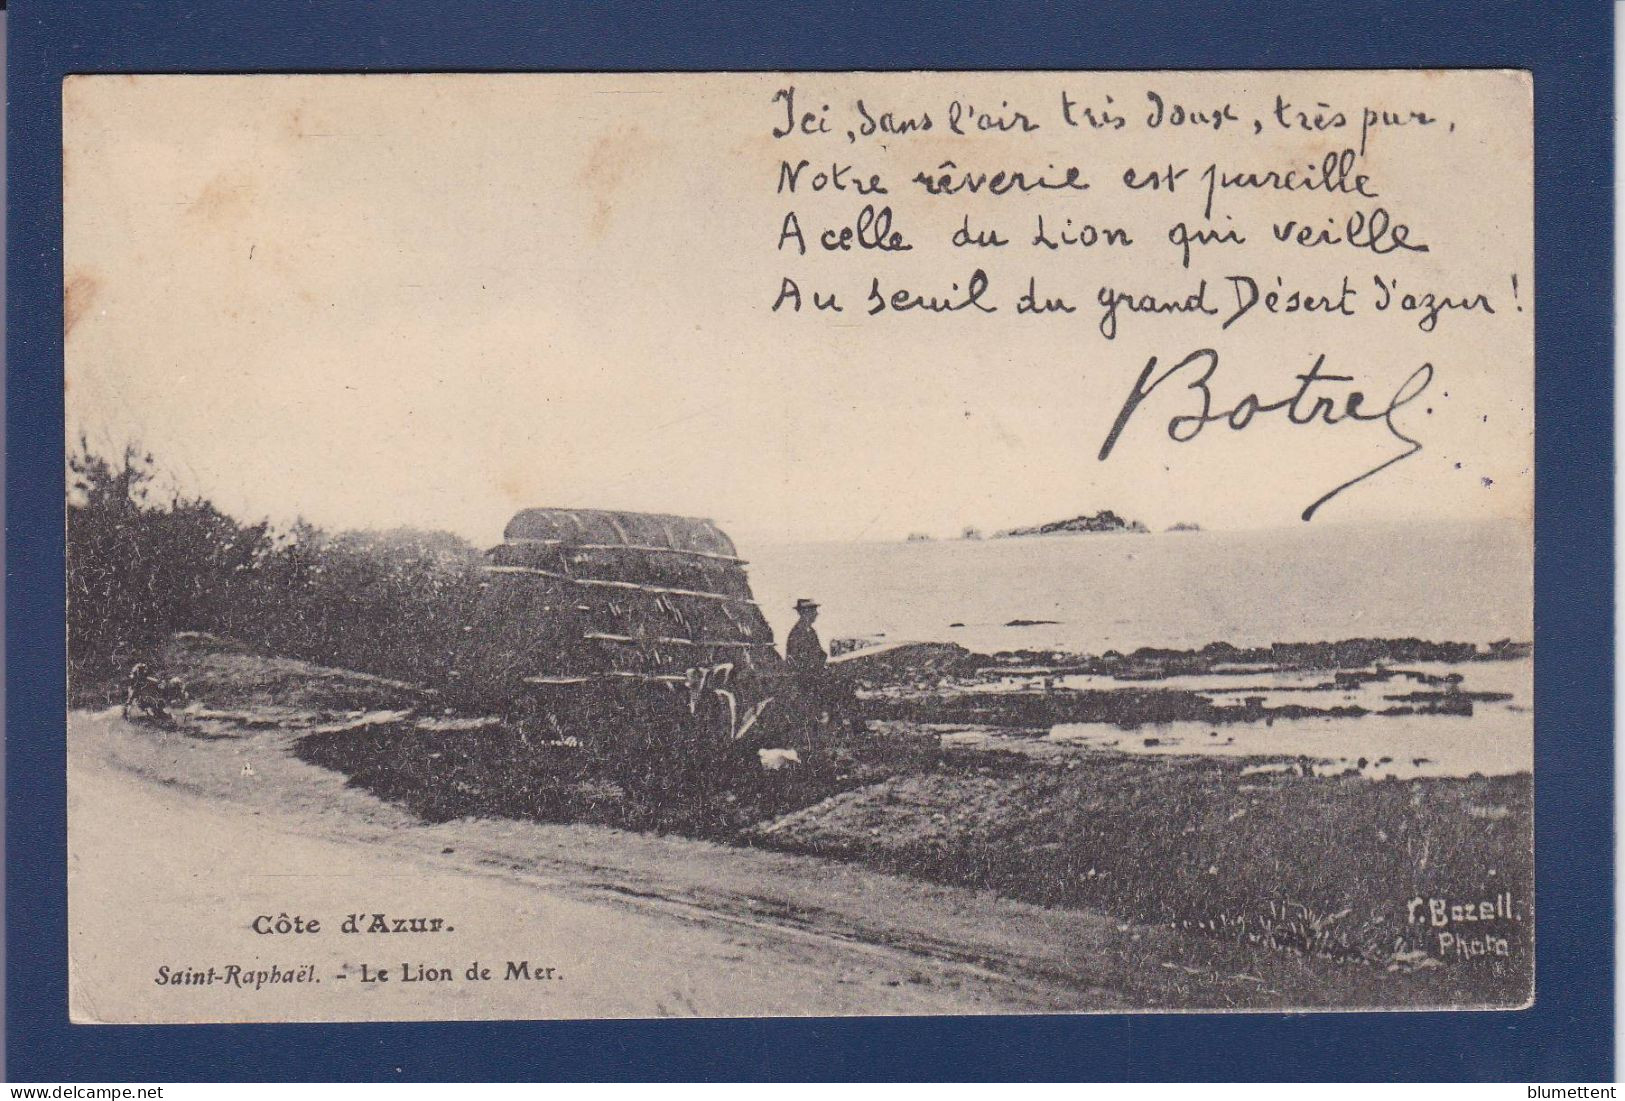 Ici, dans l'air très doux, très pur,
Notre rêverie est pareille
A celle du Lion qui veille
Au seuil du grand Désert d'azur !
Botrel.
Côte d'Azur.
Saint-Raphaël. - Le Lion de Mer.
Bozell.
Photo
blumettent